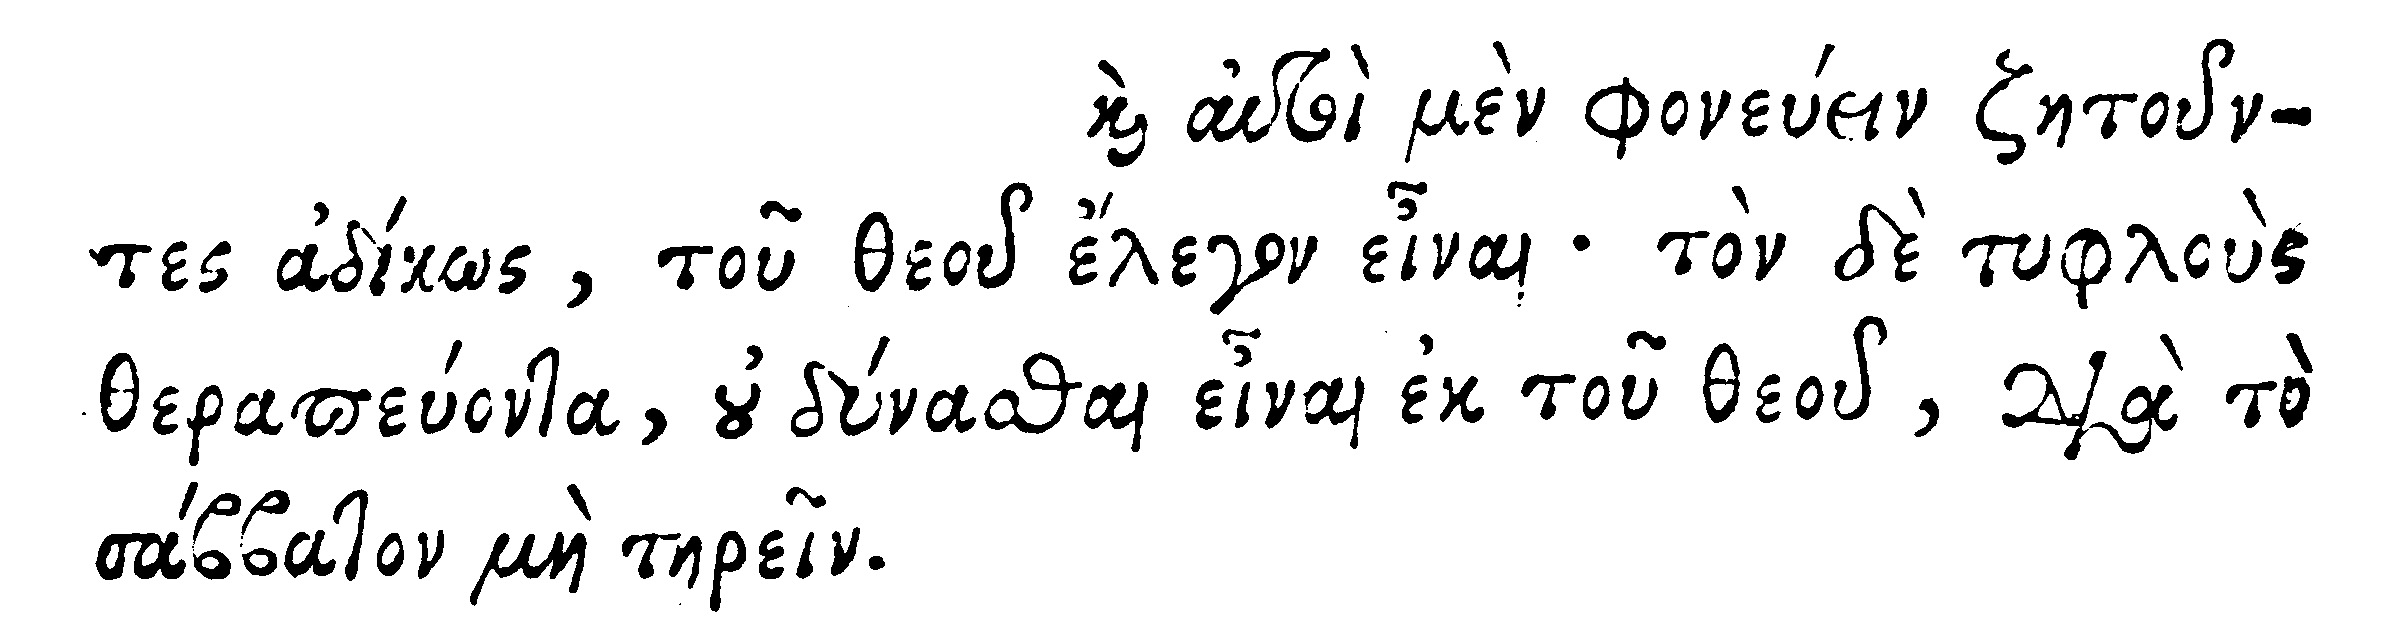 καὶ αὐτοὶ μὲν φονεύειν ζητοῦν-
τες ἀδίκως, τοῦ θεοῦ ἔλεγον εἶναι· τὸν δὲ τυφλοὺς
θεραπεύοντα, οὐ δύνασθαι εἶναι ἐκ τοῦ θεοῦ, διὰ τὸ
σάββατον μὴ τηρεῖν.